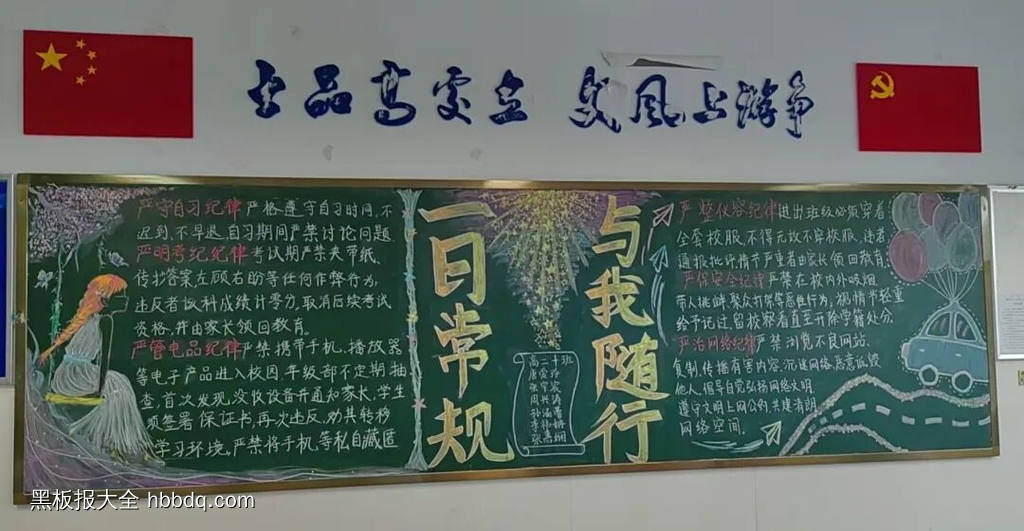 品高
风上游争
严守自习纪律 严格遵守自习时间,不
迟到,不早退,自习期间严禁讨论问题
严明考纪纪律 考试期严禁夹带纸、
传抄答案左顾右盼等任何作弊行为,
违反者该科成绩计零分,取消后续考试
资格,并由家长领回教育。
严管电品纪律 严禁携带手机、播放器
等电子产品进入校园,年级部不定期抽
查,首次发现,没收设备并通知家长,学生
须签署保证书,再次违反,劝其转移
学习环境,严禁将手机等私自藏匿
一日常规
高三十班
与我随行
严整仪容纪律 进出班级必须穿着
全套校服,不得无故不穿校服,违者
通报批评情节严重者由家长领回教育
严保安全纪律 严禁在校内外吸烟、
带人挑衅聚众打架等恶性行为,视情节轻重
给予记过,留校察看直至开除学籍处分.
严治网络纪律 严禁浏览不良网站、
复制,传播有害内容,沉迷网络,恶意诋毁
他人,倡导自觉弘扬网络文明
遵守文明上网公约,共建清朗
网络空间.
黑板报大全 hbbdq.com